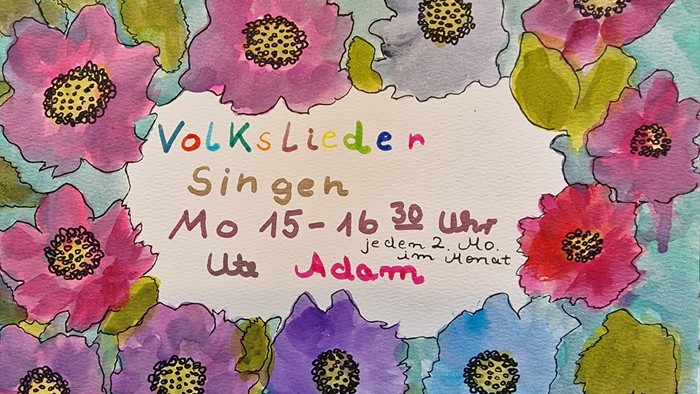 Volkslieder
Singen
Mo 15-16 30 Uhr
jeden 2. Mo.
im Monat
Ute Adam